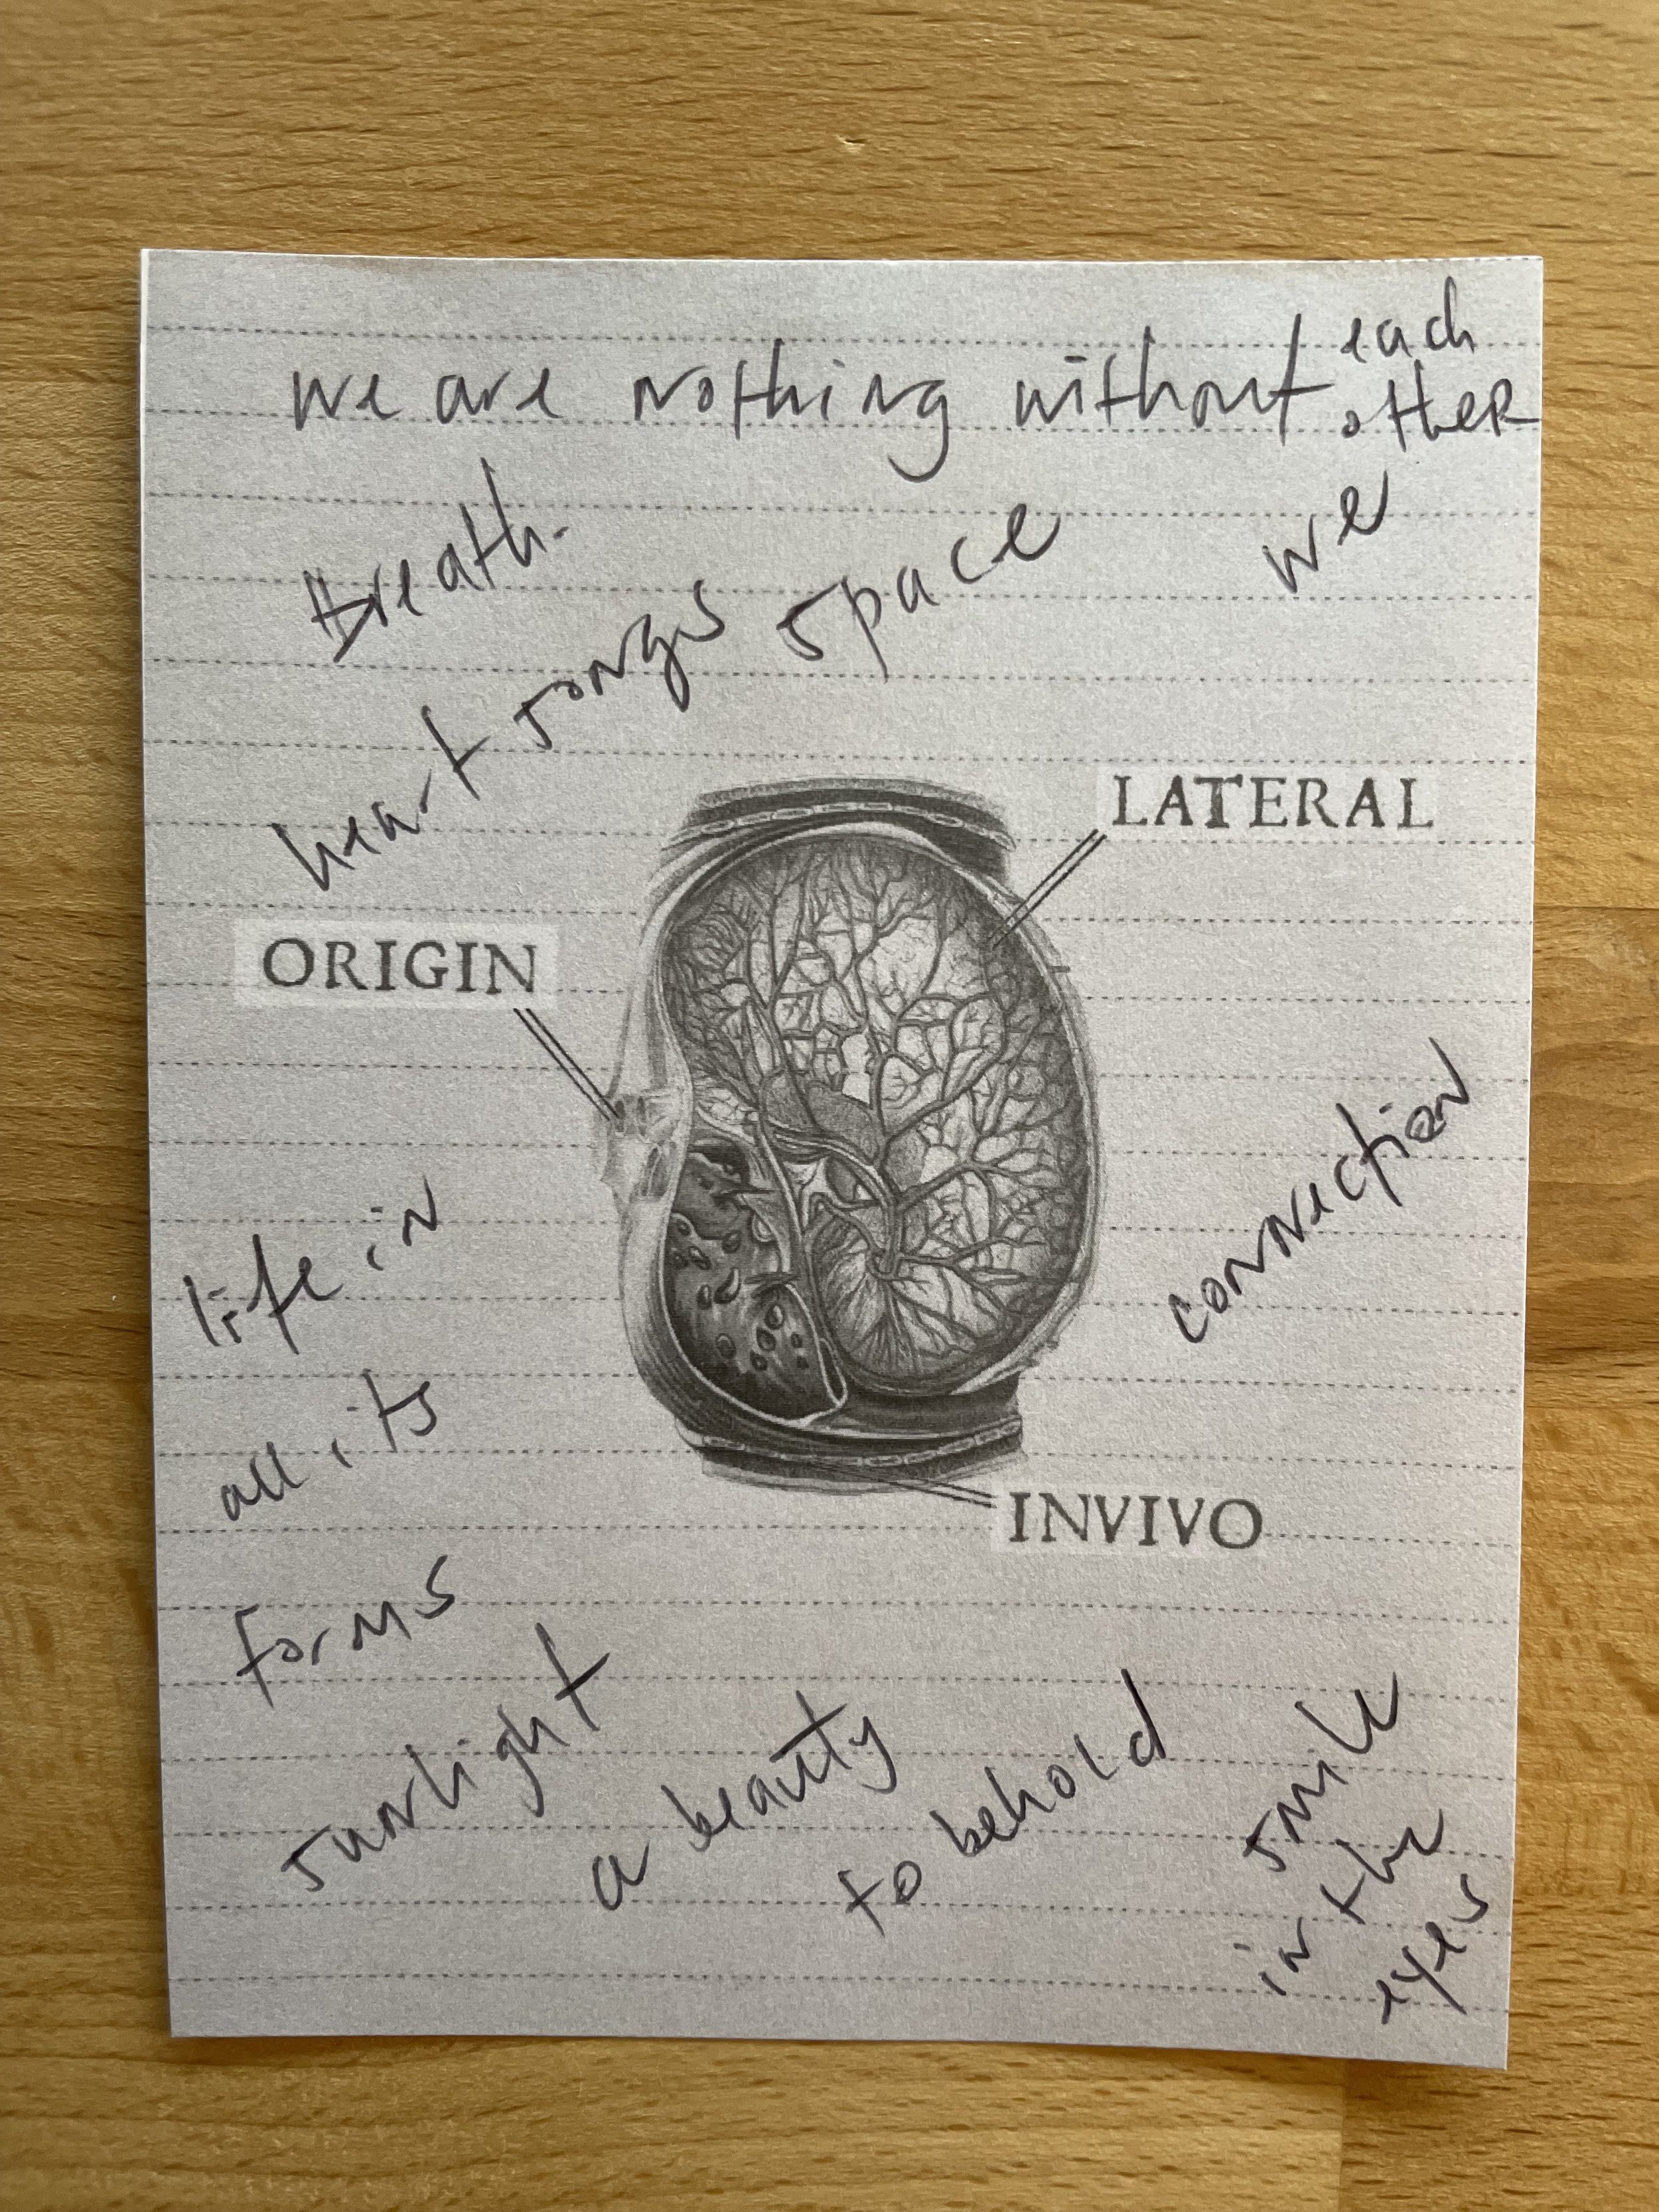 we are nothing without each other
Breath.
heart songs space
we
LATERAL
ORIGIN
connection
life in
all its
forms
INVIVO
sunlight
a beauty
to behold
smile
in the
eyes